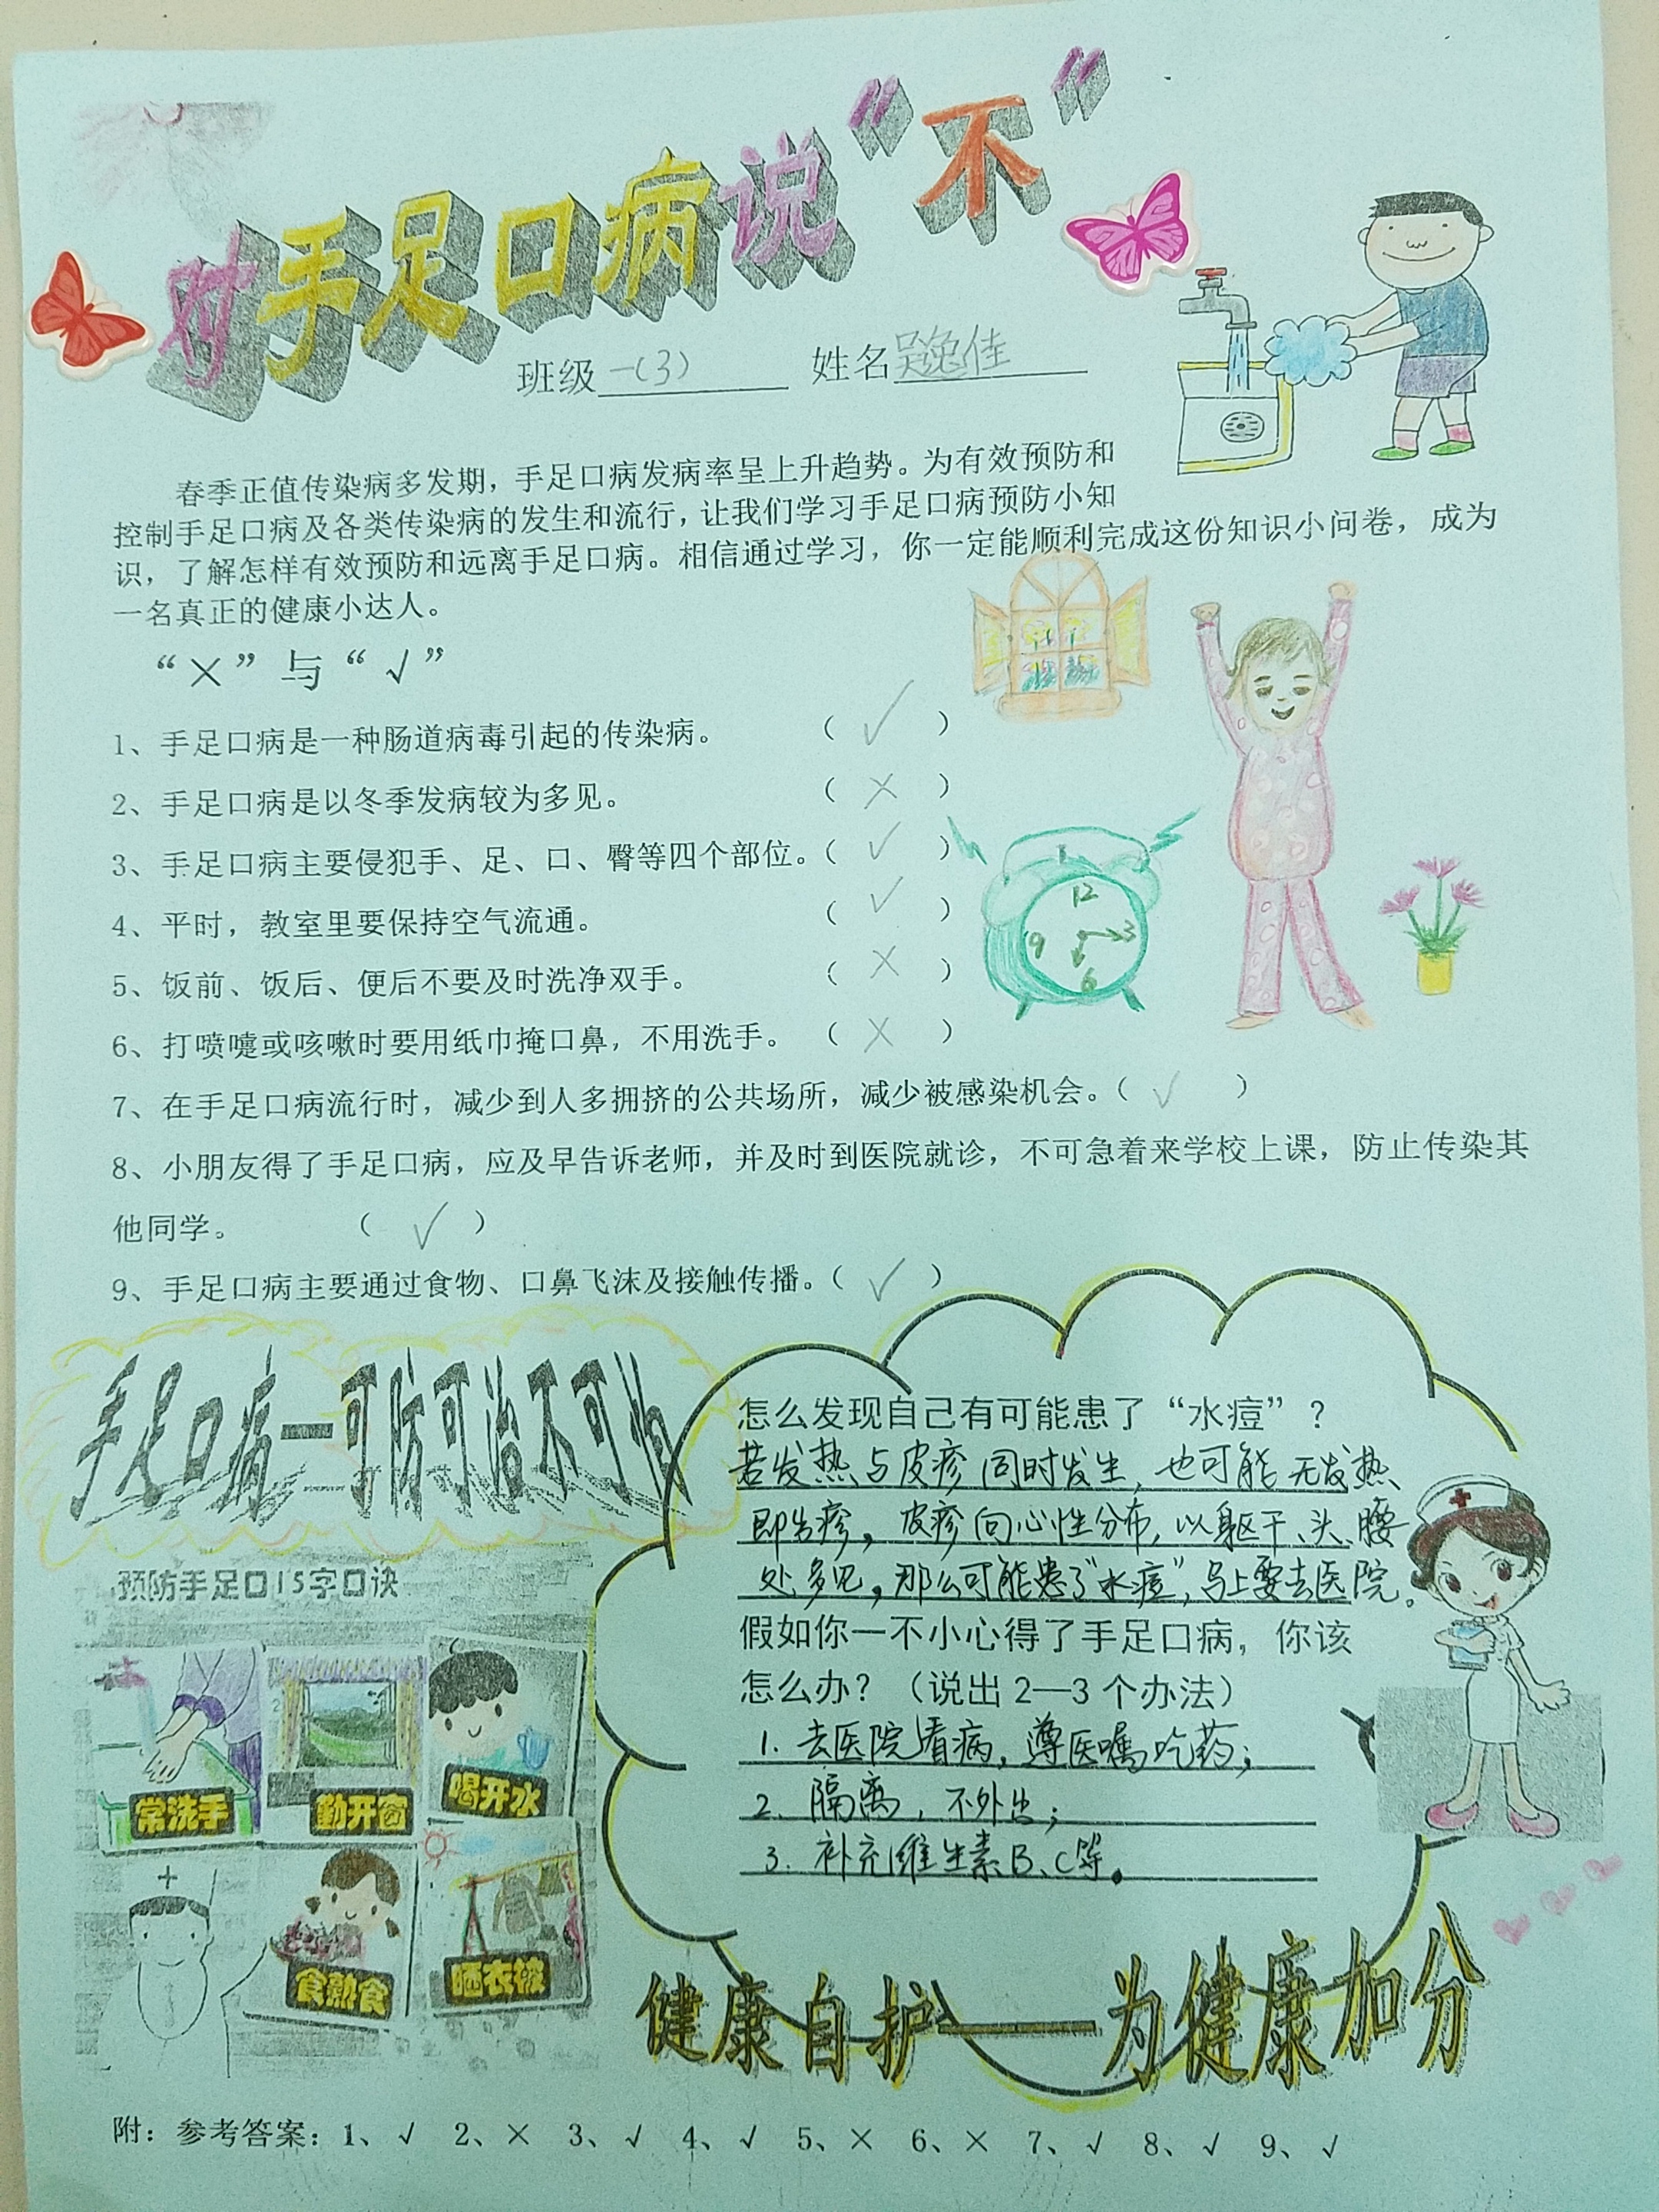 对手足口病说“不”
班级一(3) 姓名吴逸佳
春季正值传染病多发期，手足口病发病率呈上升趋势。为有效预防和
控制手足口病及各类传染病的发生和流行，让我们学习手足口病预防小知
识，了解怎样有效预防和远离手足口病。相信通过学习，你一定能顺利完成这份知识小问卷，成为
一名真正的健康小达人。
“×”与“√”
1、手足口病是一种肠道病毒引起的传染病。（√）
2、手足口病是以冬季发病较为多见。（×）
3、手足口病主要侵犯手、足、口、臀等四个部位。（√）
4、平时，教室里要保持空气流通。（√）
5、饭前、饭后、便后不要及时洗净双手。（×）
6、打喷嚏或咳嗽时要用纸巾掩口鼻，不用洗手。（×）
7、在手足口病流行时，减少到人多拥挤的公共场所，减少被感染机会。（√）
8、小朋友得了手足口病，应及早告诉老师，并及时到医院就诊，不可急着来学校上课，防止传染其
他同学。（√）
9、手足口病主要通过食物、口鼻飞沫及接触传播。（√）
12
3
6
9
手足口病—可防可治不可怕
预防手足口15字口诀
常洗手
勤开窗
喝开水
食熟食
晒衣被
怎么发现自己有可能患了“水痘”？
若发热与皮疹同时发生，也可能无发热
即出疹，皮疹向心性分布，以躯干、头、腰
处多见，那么可能患了“水痘”，马上要去医院。
假如你一不小心得了手足口病，你该
怎么办？（说出2—3个办法）
1. 去医院看病，遵医嘱吃药；
2. 隔离，不外出；
3. 补充维生素B、C等。
健康自护——为健康加分
附：参考答案：1、√ 2、× 3、√ 4、√ 5、× 6、× 7、√ 8、√ 9、√